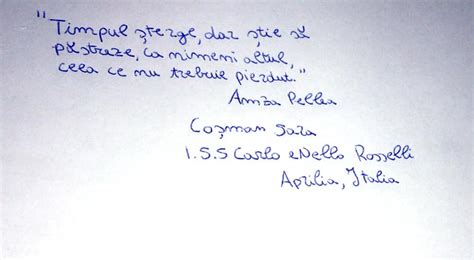 "Timpul șterge, dar știe să
păstreze, ca nimeni altul,
ceea ce nu trebuie pierdut."
Amza Pellea
Coșman Sara
I.S.S Carlo e Nello Rosselli
Aprilia, Italia